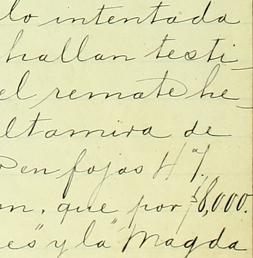 lo intentada
hallan testi-
el remate he-
ltamira de
en fojas 47.
que por $8,000.
es" y la "Magda